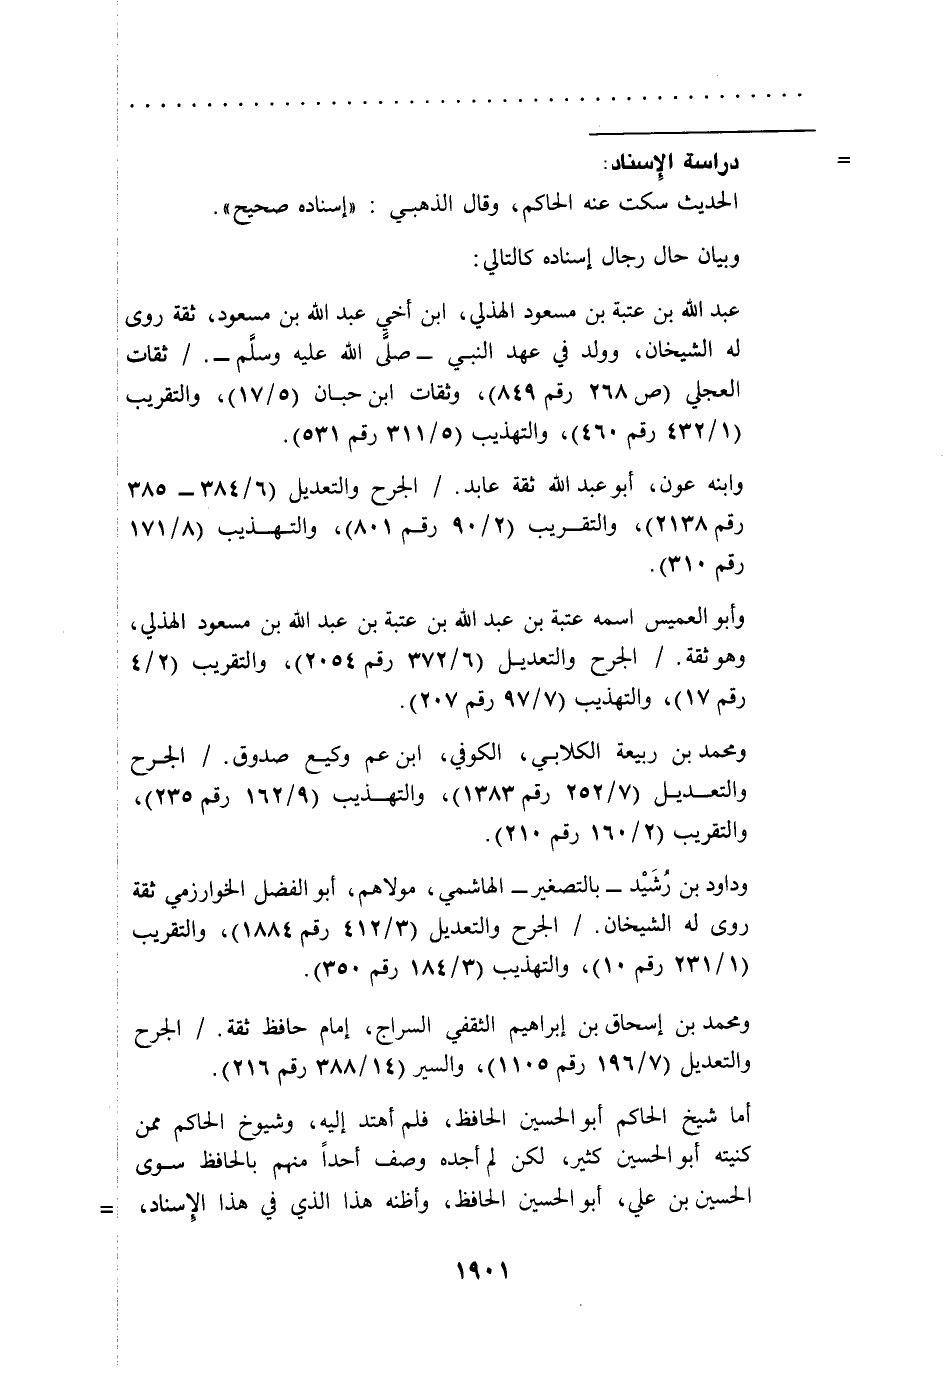 = دراسة الإسناد:
الحديث سكت عنه الحاكم، وقال الذهبي : «إسناده صحيح».
وبيان حال رجال إسناده كالتالي:
عبد الله بن عتبة بن مسعود الهذلي، ابن أخي عبد الله بن مسعود، ثقة روى
له الشيخان، وولد في عهد النبي ــ صلَّى الله عليه وسلَّم ــ. / ثقات
العجلي (ص ٢٦٨ رقم ٨٤٩)، وثقات ابن حبان (١٧/٥)، والتقريب
(٤٣٢/١ رقم ٤٦٠)، والتهذيب (٣١١/٥ رقم ٥٣١).
وابنه عون، أبو عبد الله ثقة عابد. / الجرح والتعديل (٣٨٤/٦ ــ ٣٨٥
رقم ٢١٣٨)، والتقريب (٩٠/٢ رقم ٨٠١)، والتهذيب (١٧١/٨
رقم ٣١٠).
وأبو العميس اسمه عتبة بن عبد الله بن عتبة بن عبد الله بن مسعود الهذلي،
وهو ثقة. / الجرح والتعديل (٣٧٢/٦ رقم ٢٠٥٤)، والتقريب (٤/٢
رقم ١٧)، والتهذيب (٩٧/٧ رقم ٢٠٧).
ومحمد بن ربيعة الكلابي، الكوفي، ابن عم وكيع صدوق. / الجرح
والتعديل (٢٥٢/٧ رقم ١٣٨٣)، والتهذيب (١٦٢/٩ رقم ٢٣٥)،
والتقريب (١٦٠/٢ رقم ٢١٠).
وداود بن رُشَيْد ــ بالتصغير ــ الهاشمي، مولاهم، أبو الفضل الخوارزمي ثقة
روى له الشيخان. / الجرح والتعديل (٤١٢/٣ رقم ١٨٨٤)، والتقريب
(٢٣١/١ رقم ١٠)، والتهذيب (١٨٤/٣ رقم ٣٥٠).
ومحمد بن إسحاق بن إبراهيم الثقفي السراج، إمام حافظ ثقة. / الجرح
والتعديل (١٩٦/٧ رقم ١١٠٥)، والسير (٣٨٨/١٤ رقم ٢١٦).
أما شيخ الحاكم أبو الحسين الحافظ، فلم أهتد إليه، وشيوخ الحاكم ممن
كنيته أبو الحسين كثير، لكن لم أجده وصف أحداً منهم بالحافظ سوى
الحسين بن علي، أبو الحسين الحافظ، وأظنه هذا الذي في هذا الإسناد، =
١٩٠١